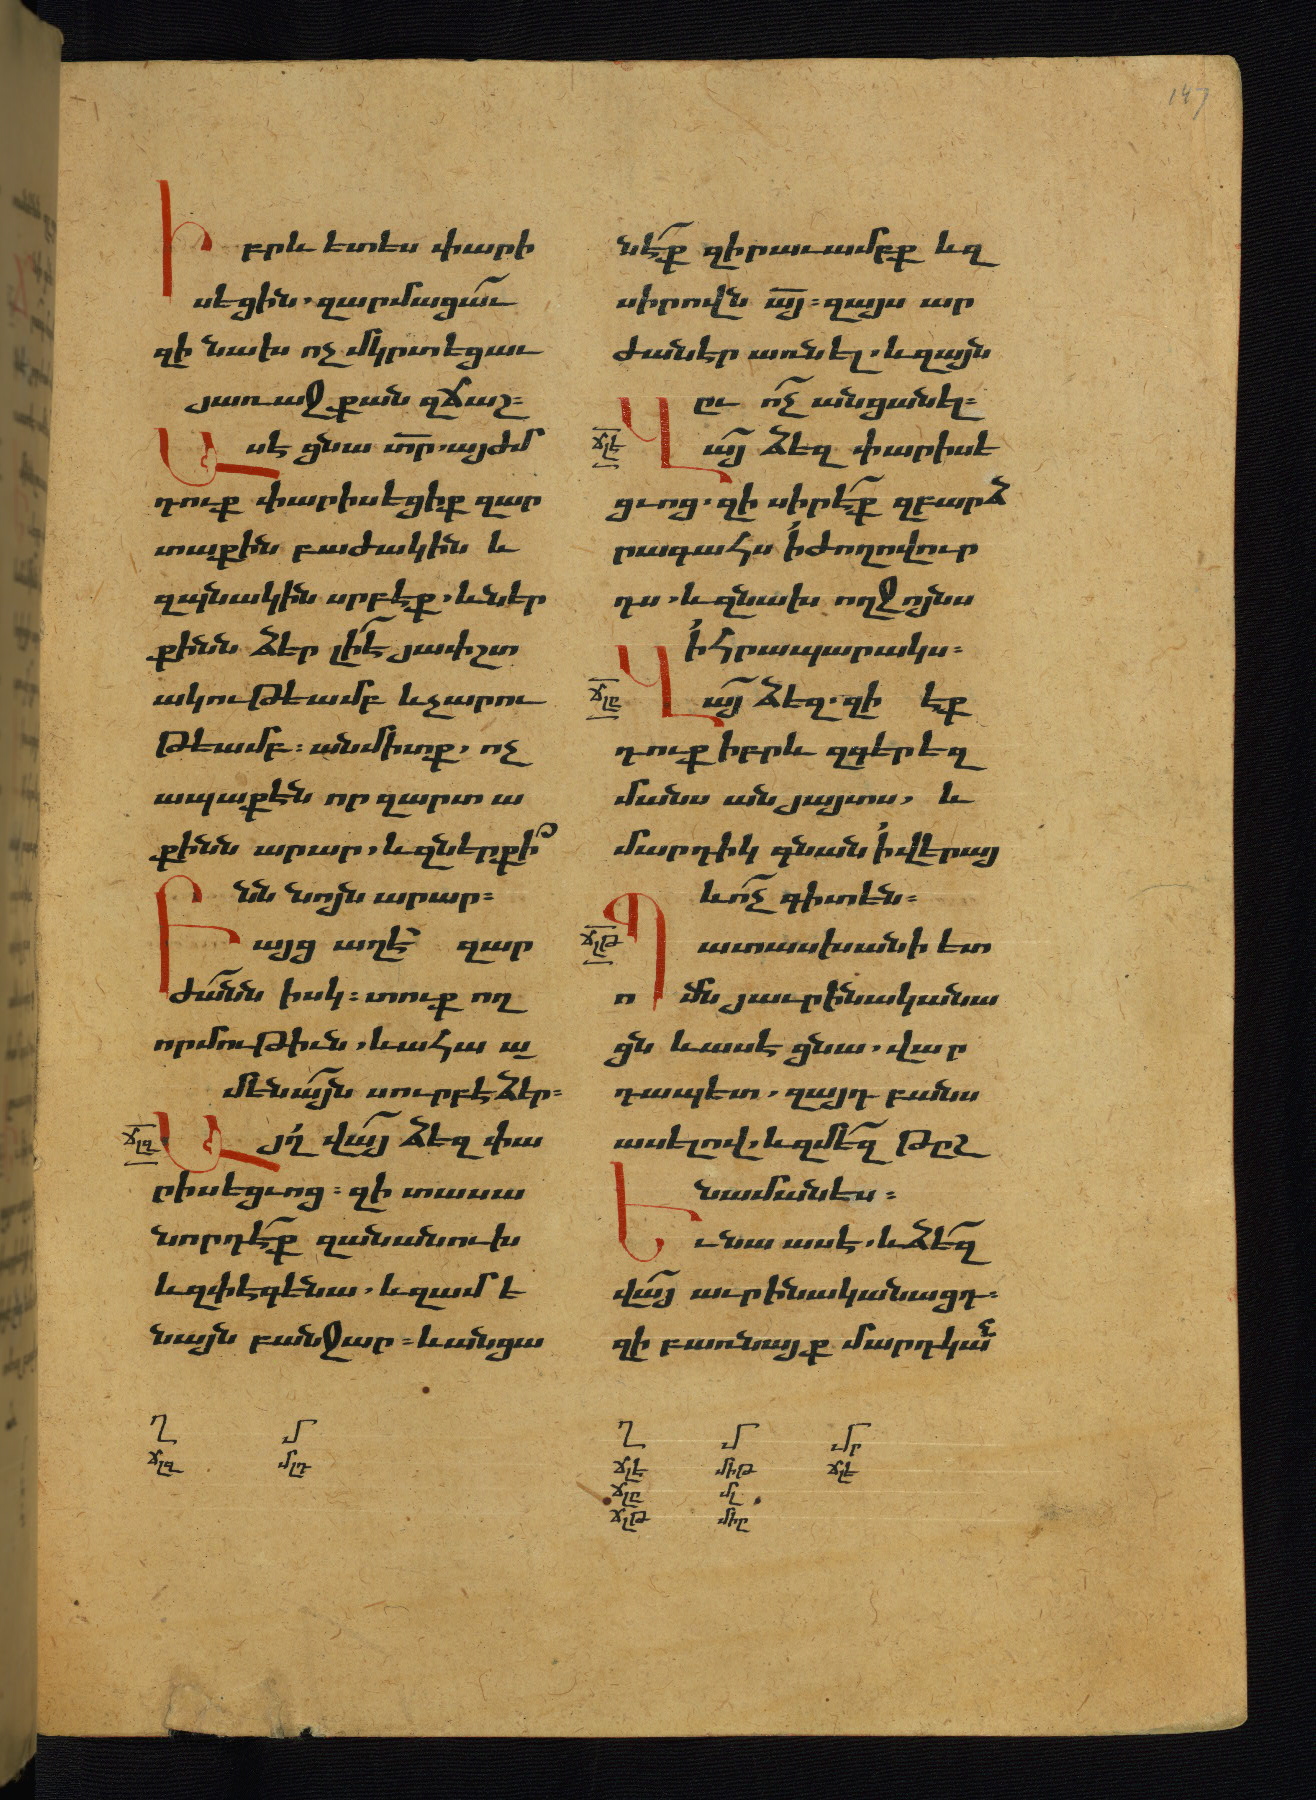 147
Իբրև ետես փարի
սեցին, զարմացաւ
զի նախ ոչ մկրտեցաւ
յառաջ քան զճաշ։
Ասէ ցնա տր. այժմ
դուք փարիսեցիք զար
տաքին բաժակին և
զպնակին սրբէք, և ներ
քինն ձեր լի է յափշտ
ակութեամբ և չարու
թեամբ։ անմիտք, ոչ
ապաքէն որ զարտ ա
քինն արար, և զներքի
նն նոյն արար։
Բայց աղէ զար
ժանն իսկ։ տուք ող
որմութիւն, և ահա ա
մենայն սուրբ է ձեր։
ճլզ Այղ վայ ձեզ փա
րիսեցւոց։ զի տասա
նորդէք զանանուխ
և զփէգէնա, և զամ ե
նայն բանջար։ և անցա
նէք զիրաւամբք և զ
սիրովն այ։ զայս ար
ժաներ առնել, և զայն
ըւ ոչ անցանել։
ճլէ Վայ ձեզ փարիսե
ցւոց. զի սիրէք զբարձ
րագահս ի ժողովուր
դս, և զնախ ողջոյնս
ի հրապարակս։
ճլը Վայ ձեզ. զի էք
դուք իբրև զգերեզ
մանս անյայտս, և
մարդիկ գնան ի վերայ
և ոչ գիտեն։
ճլթ Պատասխանի ետ
ո մն յաւրինականա
ցն և ասէ ցնա, վար
դապետ, զայդ բանս
ասելով, և զմեզ թըշ
նամանես։
Եւ նա ասէ, և ձեզ
վայ աւրինականացդ։
զի բառնայք մարդկան
Ղ Մ
ճլզ մլդ
Ղ Մ Մր
ճլէ միթ ճլէ
ճլը մլ
ճլթ միը